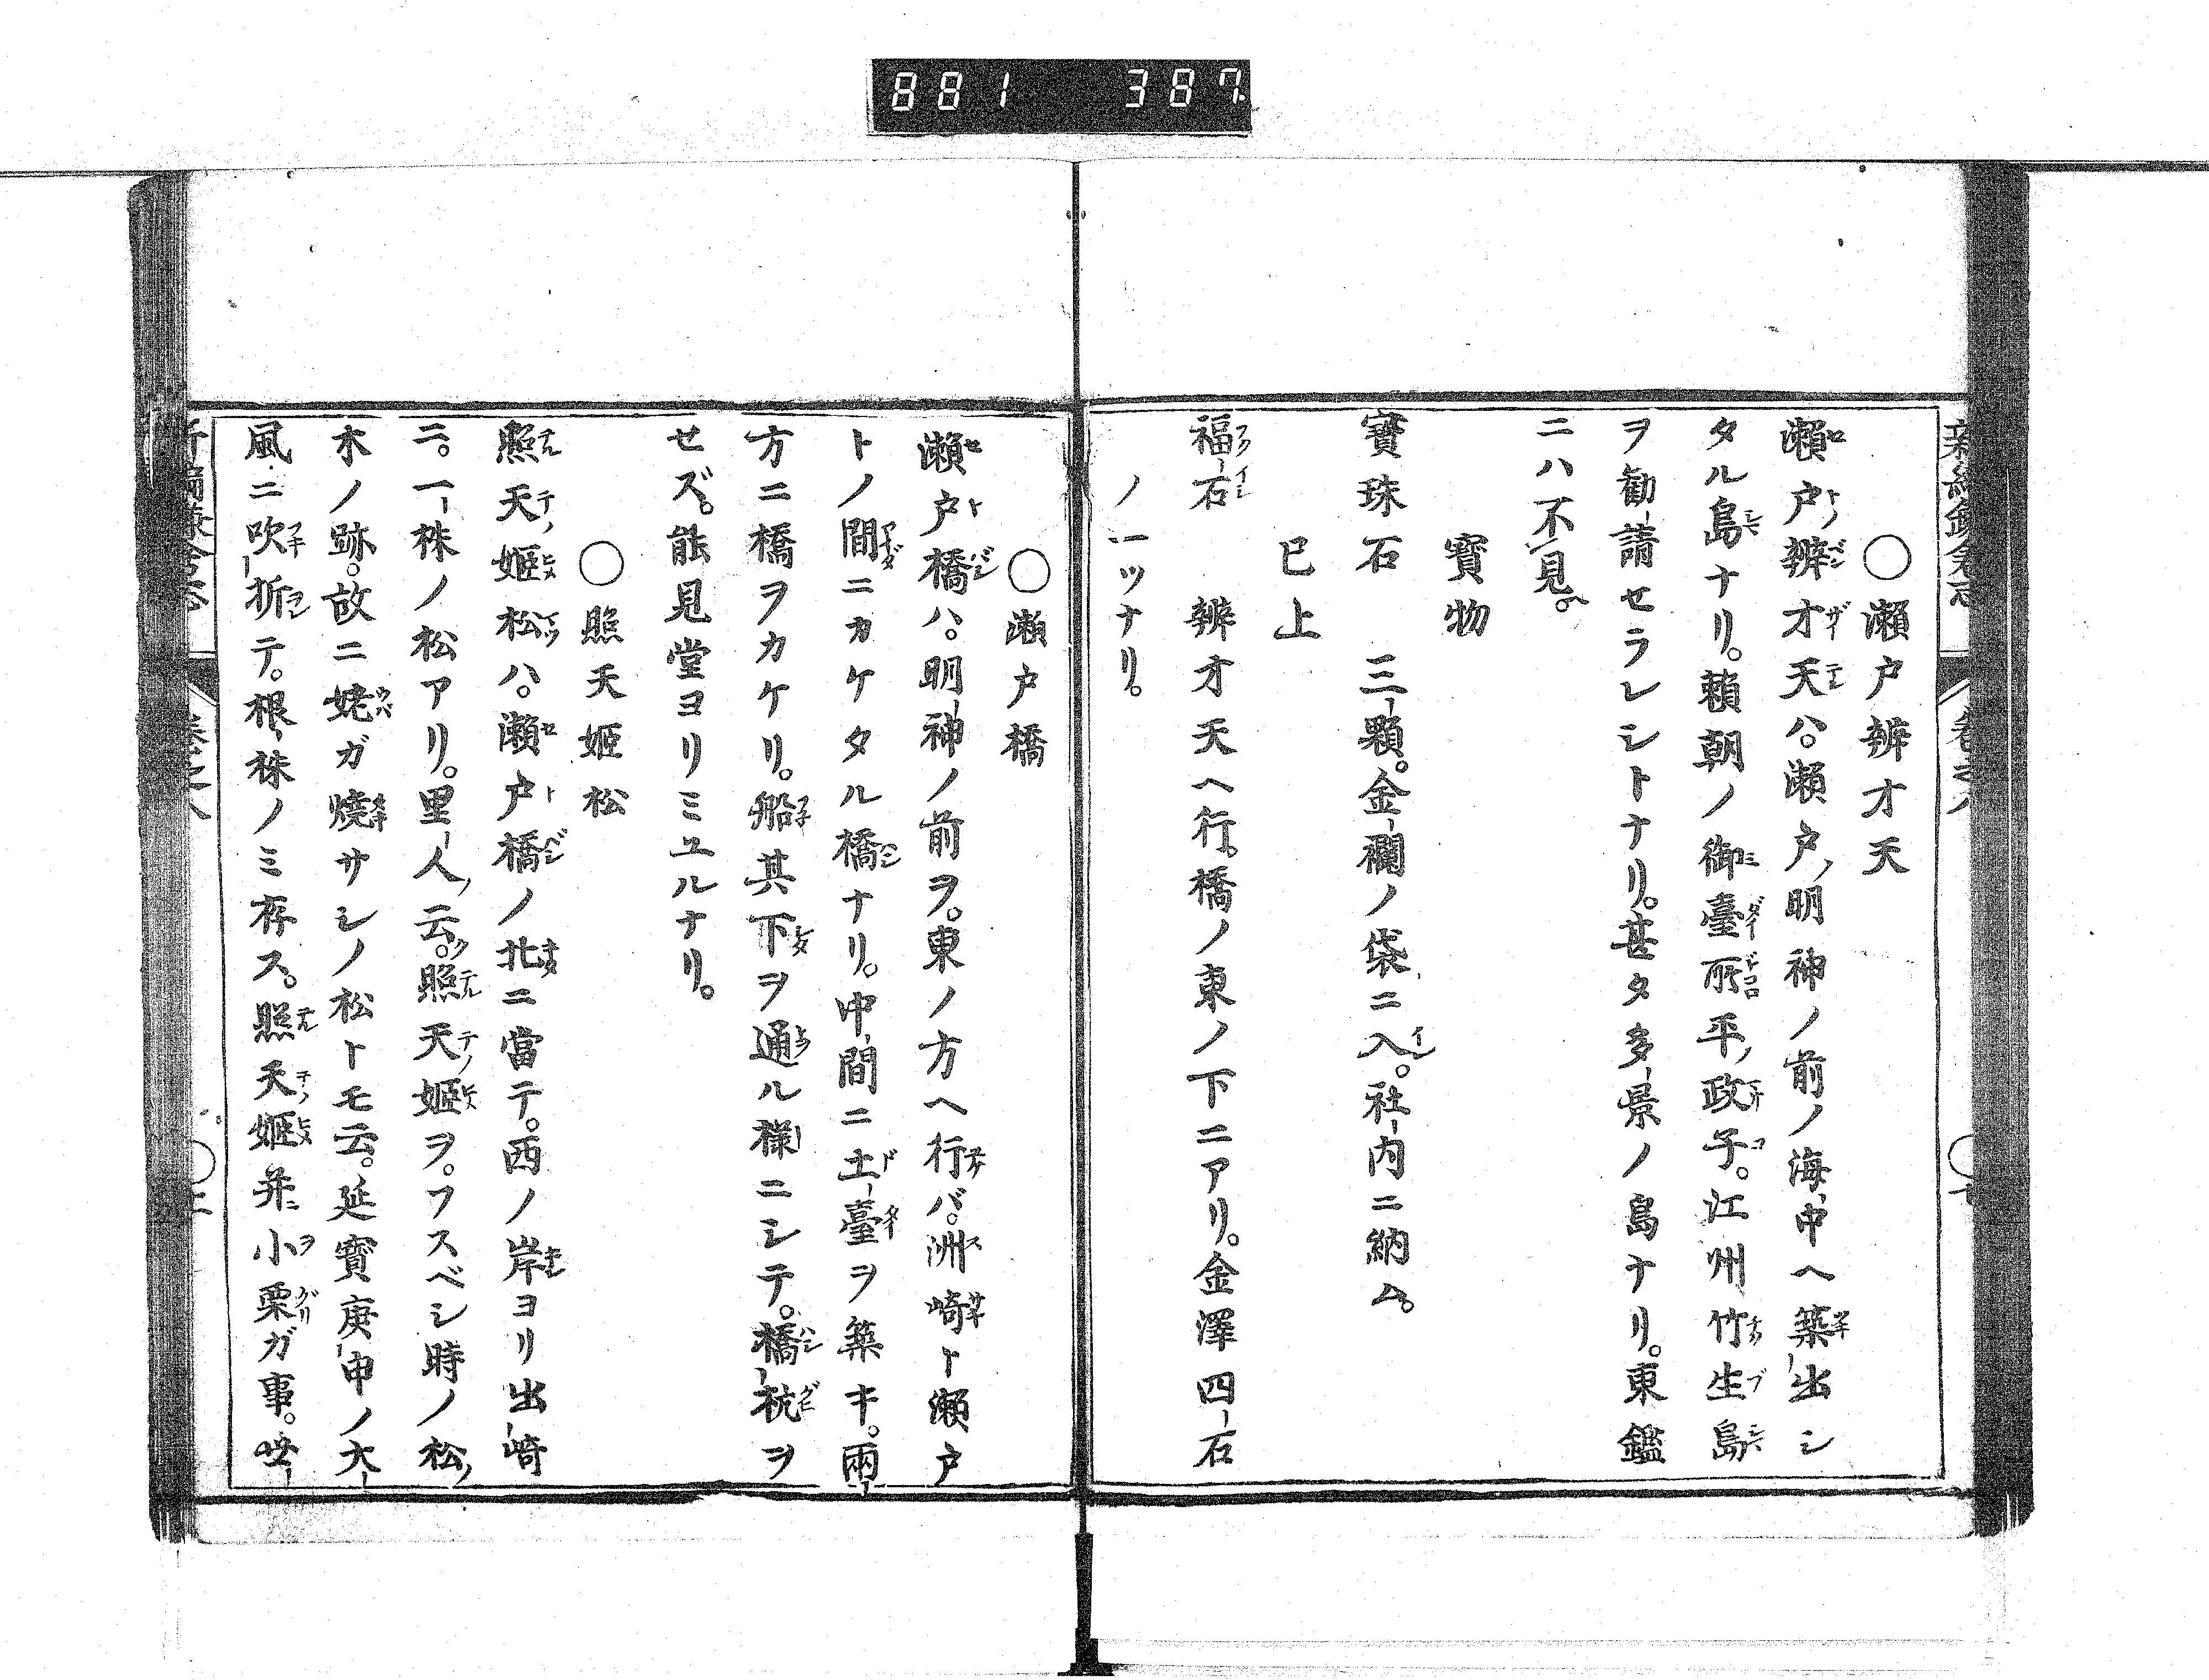 881 387
○瀬戸辨才天
瀬戸辨才天ハ。瀬戸明神ノ前ノ海中ヘ築出シ
タル島ナリ。頼朝ノ御臺所平政子。江州竹生島
ヲ勸請セラレシトナリ。甚タ多景ノ島ナリ。東鑑
ニハ不見。
寶物
寶珠石 三顆。金襴ノ袋ニ入。社内ニ納ム。
已上
福石 辨才天ヘ行。橋ノ東ノ下ニアリ。金澤四石
ノ一ツナリ。
○瀬戸橋
瀬戸橋ハ。明神ノ前ヲ。東ノ方ヘ行バ。洲崎ト瀬戸
トノ間ニカケタル橋ナリ。中間ニ土臺ヲ築キ。兩
方ニ橋ヲカケリ。船其下ヲ通ル様ニシテ。橋杭ヲ
セズ。能見堂ヨリミユルナリ。
○照天姫松
照天姫松ハ。瀬戸橋ノ北ニ當テ。西ノ岸ヨリ出崎
ニ。一株ノ松アリ。里人云。照天姫ヲ。フスベシ時ノ松
木ノ跡。故ニ姥ガ燒サシノ松トモ云。延寶庚申ノ大
風ニ吹折テ。根株ノミ存ス。照天姫并小栗ガ事。